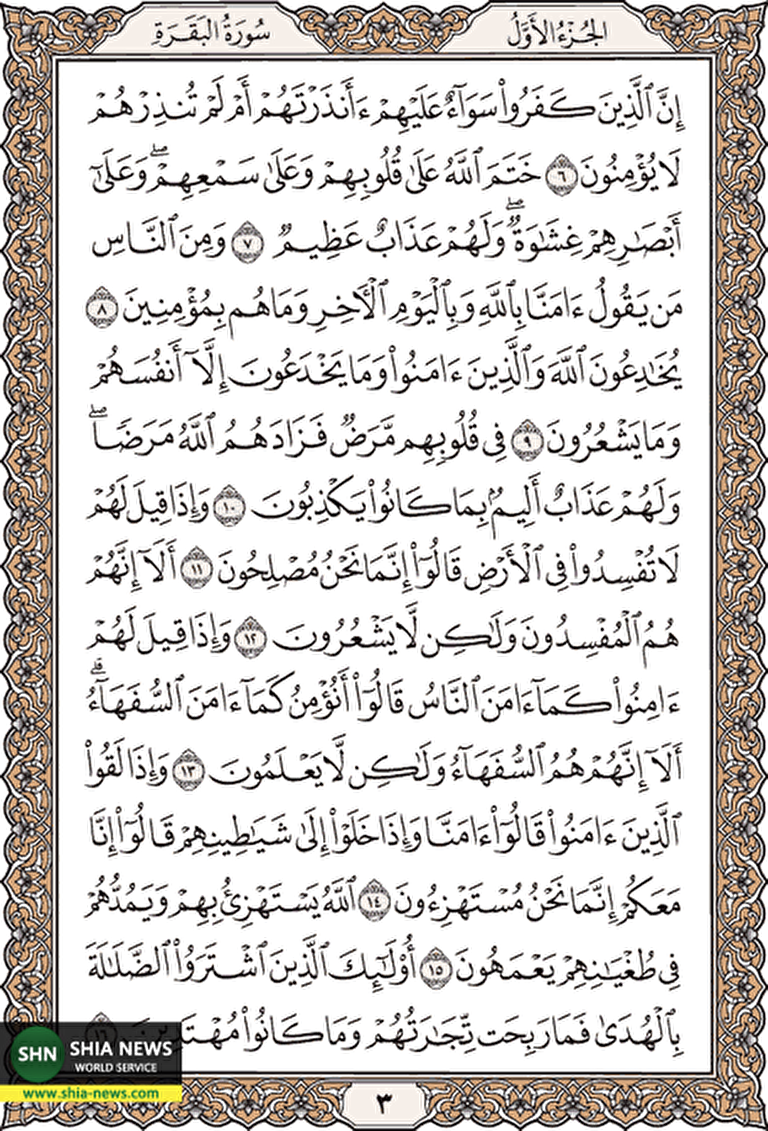 الجُزْءُ الأَوَّلُ
سُورَةُ البَقَرَةِ
إِنَّ ٱلَّذِينَ كَفَرُوا۟ سَوَآءٌ عَلَيْهِمْ ءَأَنذَرْتَهُمْ أَمْ لَمْ تُنذِرْهُمْ
لَا يُؤْمِنُونَ ٦ خَتَمَ ٱللَّهُ عَلَىٰ قُلُوبِهِمْ وَعَلَىٰ سَمْعِهِمْ ۖ وَعَلَىٰٓ
أَبْصَٰرِهِمْ غِشَٰوَةٌ ۖ وَلَهُمْ عَذَابٌ عَظِيمٌ ٧ وَمِنَ ٱلنَّاسِ
مَن يَقُولُ ءَامَنَّا بِٱللَّهِ وَبِٱلْيَوْمِ ٱلْـَٔاخِرِ وَمَا هُم بِمُؤْمِنِينَ ٨
يُخَٰدِعُونَ ٱللَّهَ وَٱلَّذِينَ ءَامَنُوا۟ وَمَا يَخْدَعُونَ إِلَّآ أَنفُسَهُمْ
وَمَا يَشْعُرُونَ ٩ فِى قُلُوبِهِم مَّرَضٌ فَزَادَهُمُ ٱللَّهُ مَرَضًا ۖ
وَلَهُمْ عَذَابٌ أَلِيمٌۢ بِمَا كَانُوا۟ يَكْذِبُونَ ١٠ وَإِذَا قِيلَ لَهُمْ
لَا تُفْسِدُوا۟ فِى ٱلْأَرْضِ قَالُوٓا۟ إِنَّمَا نَحْنُ مُصْلِحُونَ ١١ أَلَآ إِنَّهُمْ
هُمُ ٱلْمُفْسِدُونَ وَلَٰكِن لَّا يَشْعُرُونَ ١٢ وَإِذَا قِيلَ لَهُمْ
ءَامِنُوا۟ كَمَآ ءَامَنَ ٱلنَّاسُ قَالُوٓا۟ أَنُؤْمِنُ كَمَآ ءَامَنَ ٱلسُّفَهَآءُ ۗ
أَلَآ إِنَّهُمْ هُمُ ٱلسُّفَهَآءُ وَلَٰكِن لَّا يَعْلَمُونَ ١٣ وَإِذَا لَقُوا۟
ٱلَّذِينَ ءَامَنُوا۟ قَالُوٓا۟ ءَامَنَّا وَإِذَا خَلَوْا۟ إِلَىٰ شَيَٰطِينِهِمْ قَالُوٓا۟ إِنَّا
مَعَكُمْ إِنَّمَا نَحْنُ مُسْتَهْزِءُونَ ١٤ ٱللَّهُ يَسْتَهْزِئُ بِهِمْ وَيَمُدُّهُمْ
فِى طُغْيَٰنِهِمْ يَعْمَهُونَ ١٥ أُو۟لَٰٓئِكَ ٱلَّذِينَ ٱشْتَرَوُا۟ ٱلضَّلَٰلَةَ
بِٱلْهُدَىٰ فَمَا رَبِحَت تِّجَٰرَتُهُمْ وَمَا كَانُوا۟ مُهْتَدِينَ ١٦
SHN SHIA NEWS
WORLD SERVICE
www.shia-news.com
٣